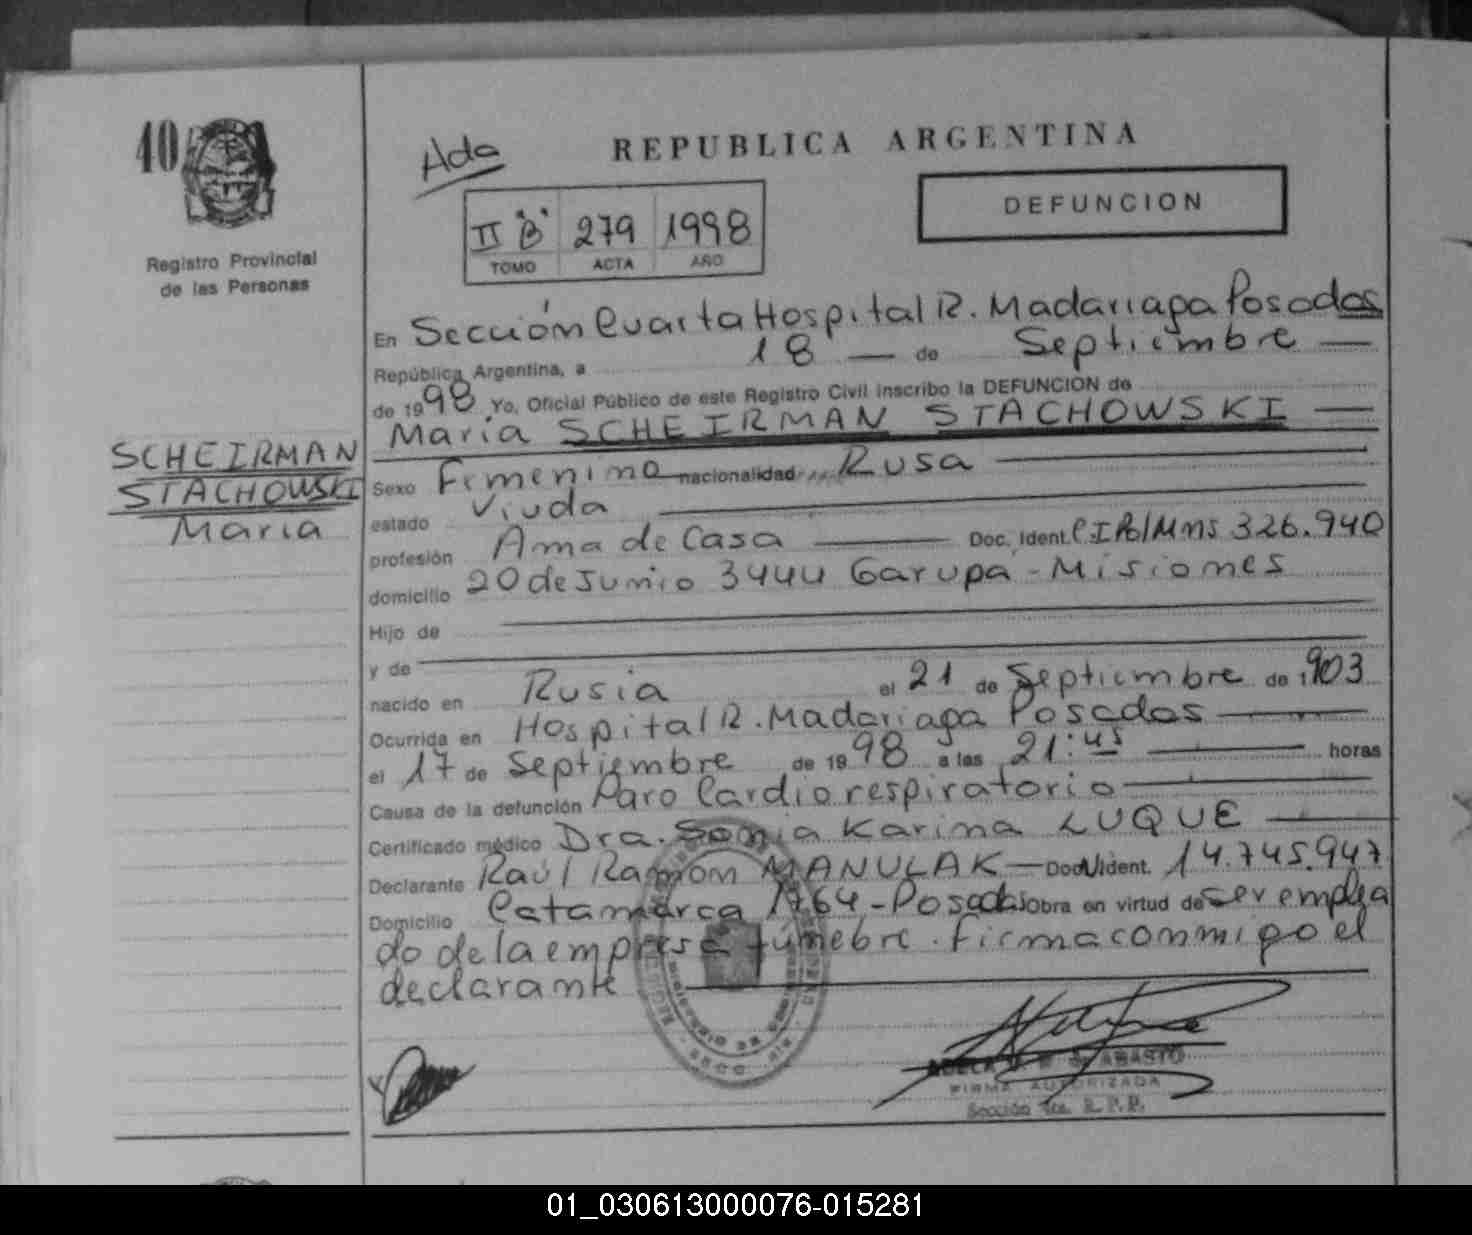 40
Registro Provincial
de las Personas
Ada
REPUBLICA ARGENTINA
DEFUNCION
II "B" 279 1998
TOMO ACTA AÑO
En Sección Cuarta Hospital R. Madariaga Posadas
República Argentina, a 18 — de Septiembre —
de 1998 Yo, Oficial Público de este Registro Civil inscribo la DEFUNCION de
Maria SCHEIRMAN STACHOWSKI —
SCHEIRMAN
STACHOWSKI
Maria
Sexo Femenino nacionalidad Rusa
estado Viuda
profesión Ama de Casa — Doc. Ident. C.I Pol Mns 326.940
domicilio 20 de Junio 3444 Garupa - Misiones
Hijo de
y de
nacido en Rusia el 21 de Septiembre de 1903
Ocurrida en Hospital R. Madariaga Posadas —
el 17 de Septiembre de 1998 a las 21:45 — horas
Causa de la defunción Paro Cardiorespiratorio —
Certificado médico Dra. Sonia Karina LUQUE —
Declarante Raúl Ramon MANULAK — Doc. Ident. 14.745.947
Domicilio Catamarca 1764 - Posadas Obra en virtud de ser emplea
do de la empresa fúnebre. firma conmigo el
declarante
ADELA de ABASTO
FIRMA AUTORIZADA
Sección 4ta. R.P.P.
01_030613000076-015281